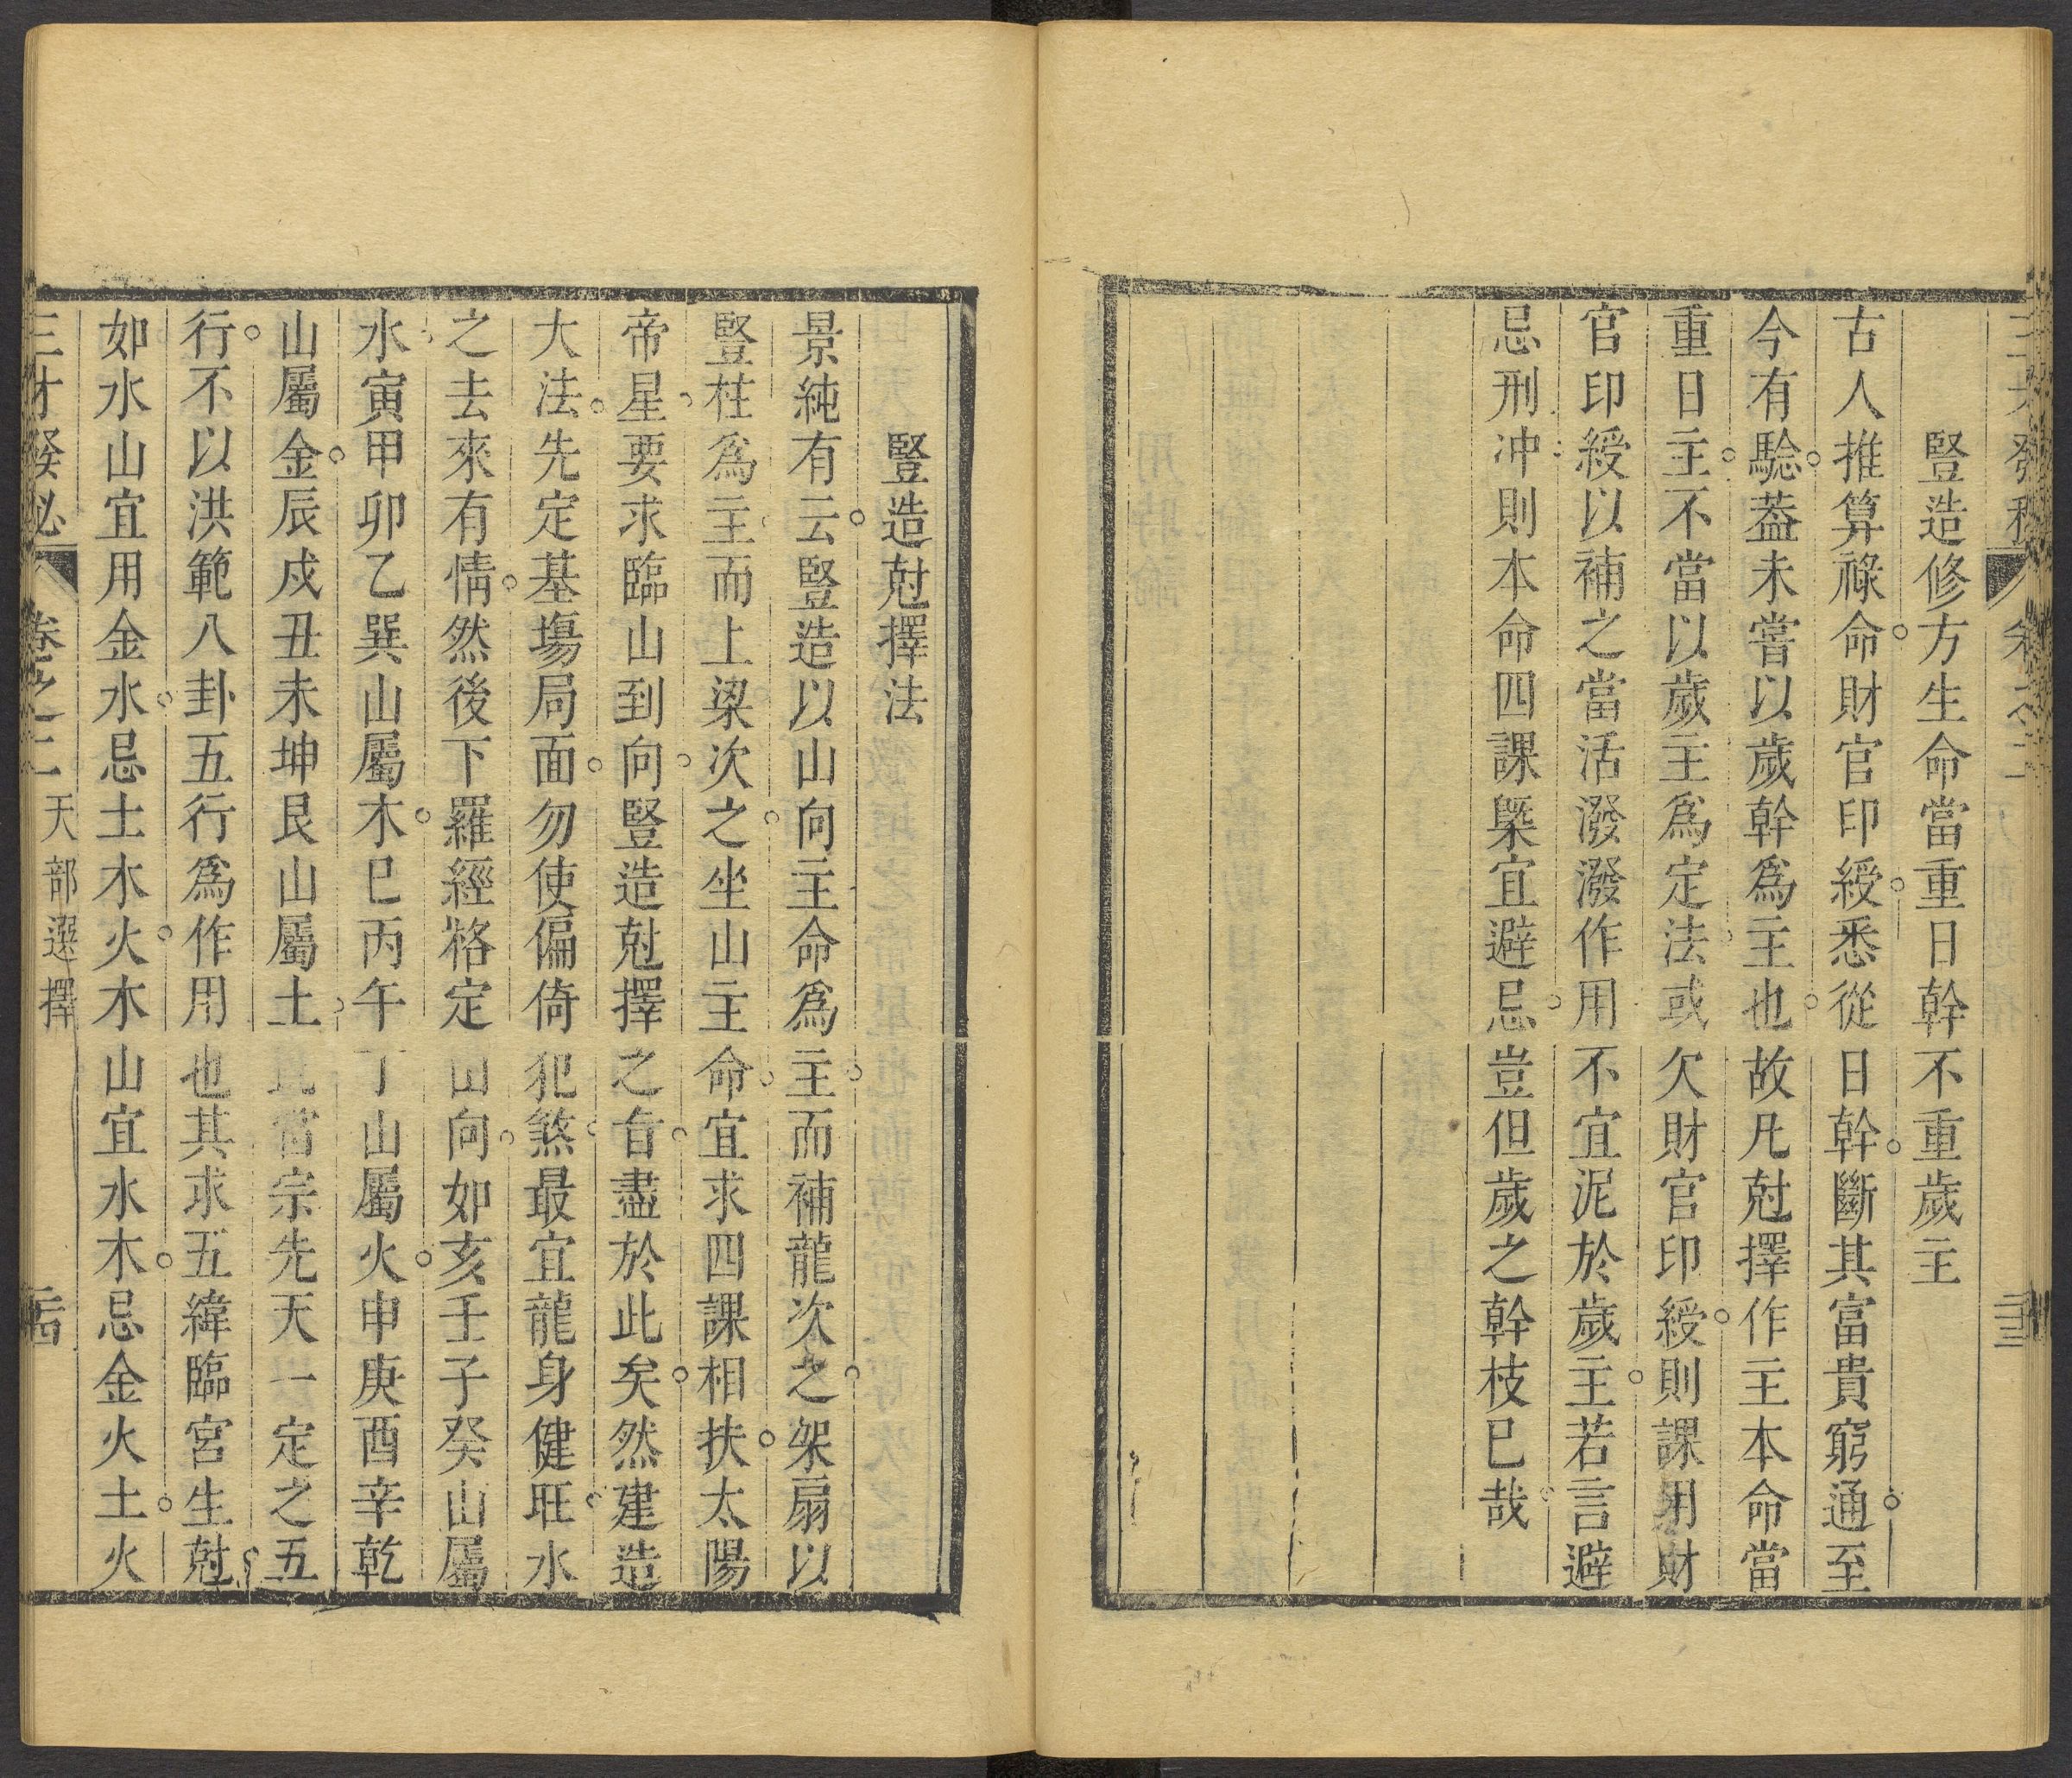 豎造修方生命當重日幹不重歲主
古人推算祿命財官印綬悉從日幹斷其富貴窮通至
今有驗葢未嘗以歲幹爲主也故凡尅擇作主本命當
重日主不當以歲主爲定法或欠財官印綬則課用財
官印綬以補之當活潑潑作用不宜泥於歲主若言避
忌刑冲則本命四課槩宜避忌豈但歲之幹枝巳哉
豎造尅擇法
景純有云豎造以山向主命爲主而補龍次之架扇以
豎柱爲主而上梁次之坐山主命宜求四課相扶太陽
帝星要求臨山到向豎造尅擇之旨盡於此矣然建造
大法先定基塲局面勿使偏倚犯煞最宜龍身健旺水
之去來有情然後下羅經格定山向如亥壬子癸山屬
水寅甲卯乙巽山屬木巳丙午丁山屬火申庚酉辛乾
山屬金辰戍丑未坤艮山屬土宗先天一定之五
行不以洪範八卦五行爲作用也其求五緯臨宮生尅
如水山宜用金水忌土木火木山宜水木忌金火土火
三才發秘 卷之二 天部選擇 二十四